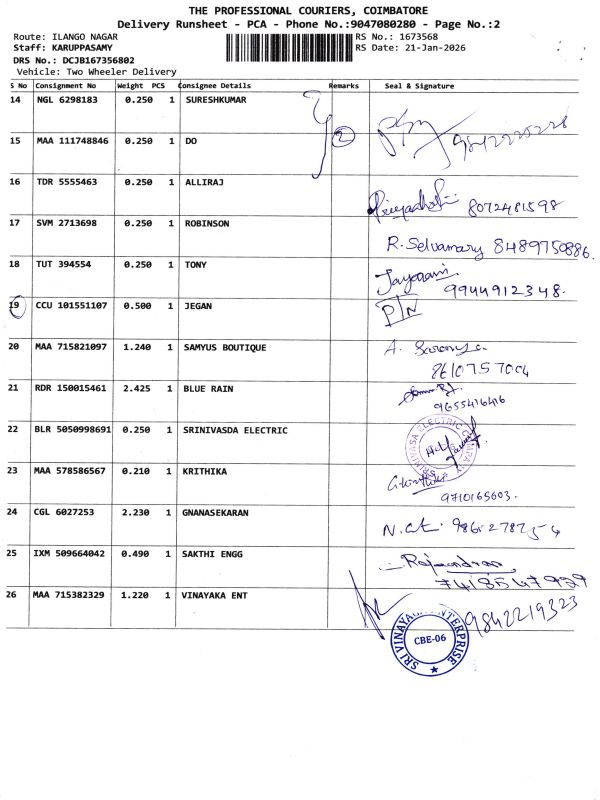 THE PROFESSIONAL COURIERS, COIMBATORE
Delivery Runsheet - PCA - Phone No.:9047080280 - Page No.:2
Route: ILANGO NAGAR RS No.: 1673568
Staff: KARUPPASAMY RS Date: 21-Jan-2026
DRS No.: DCJB167356802
Vehicle: Two Wheeler Delivery
S No Consignment No Weight PCS Consignee Details Remarks Seal & Signature
14 NGL 6298183 0.250 1 SURESHKUMAR
15 MAA 111748846 0.250 1 DO 2
16 TDR 5555463 0.250 1 ALLIRAJ
8072481598
17 SVM 2713698 0.250 1 ROBINSON
R. Selvamary 8489750886.
18 TUT 394554 0.250 1 TONY
Jayarani
99449 12348.
19 CCU 101551107 0.500 1 JEGAN P/N
20 MAA 715821097 1.240 1 SAMYUS BOUTIQUE A. Saranya
8610757004
21 RDR 150015461 2.425 1 BLUE RAIN
9655416416
22 BLR 5050998691 0.250 1 SRINIVASDA ELECTRIC
SRINIVASA ELECTRIC COMPANY
23 MAA 578586567 0.210 1 KRITHIKA
9710165603.
24 CGL 6027253 2.230 1 GNANASEKARAN
25 IXM 509664042 0.490 1 SAKTHI ENGG Rajendran
26 MAA 715382329 1.220 1 VINAYAKA ENT
9842219323
SRI VINAYAKA ENTERPRISE
CBE-06